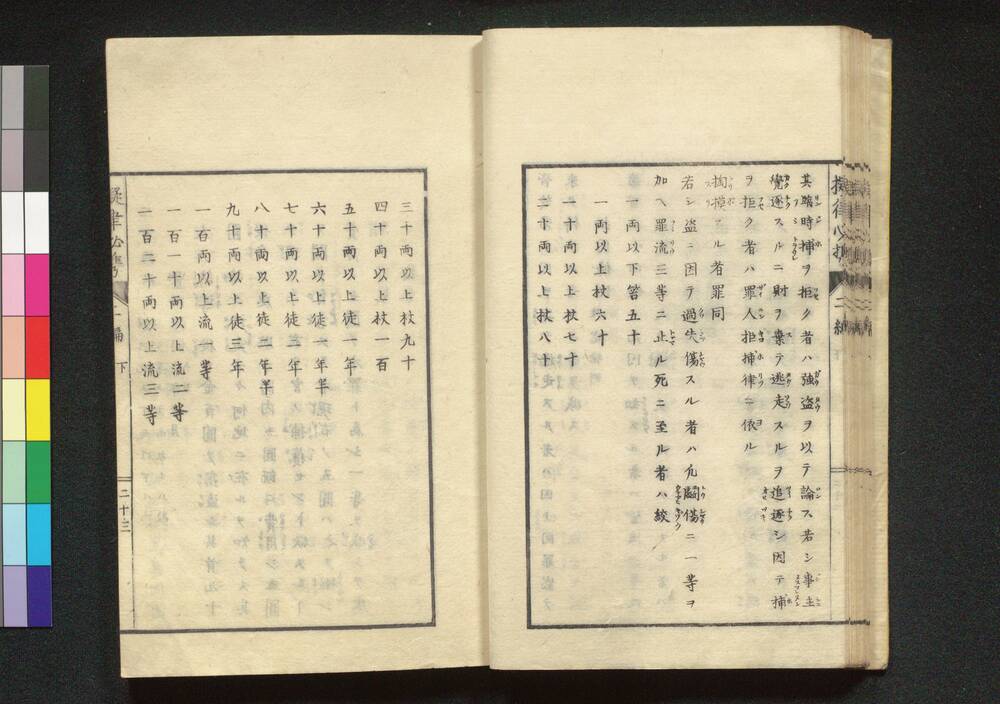 其臨時捕ヲ拒ク者ハ強盗ヲ以テ論ス若シ事主
覺逐スルニ財ヲ棄テ逃走スルヲ追逐シ因テ捕
ヲ拒ク者ハ罪人拒捕律ニ依ル
掏摸スル者罪同
若シ盗ニ因テ過失傷スル者ハ凢鬪傷ニ一等ヲ
加ヘ罪流三等ニ止ル死ニ至ル者ハ絞
一両以下笞五十
一両以上杖六十
一十両以上杖七十
二十両以上杖八十
三十両以上杖九十
四十両以上杖一百
五十両以上徒一年
六十両以上徒一年半
七十両以上徒二年
八十両以上徒二年半
九十両以上徒三年
一百両以上流一等
一百一十両以上流二等
一百二十両以上流三等
擬律必携
二編
下
二十三